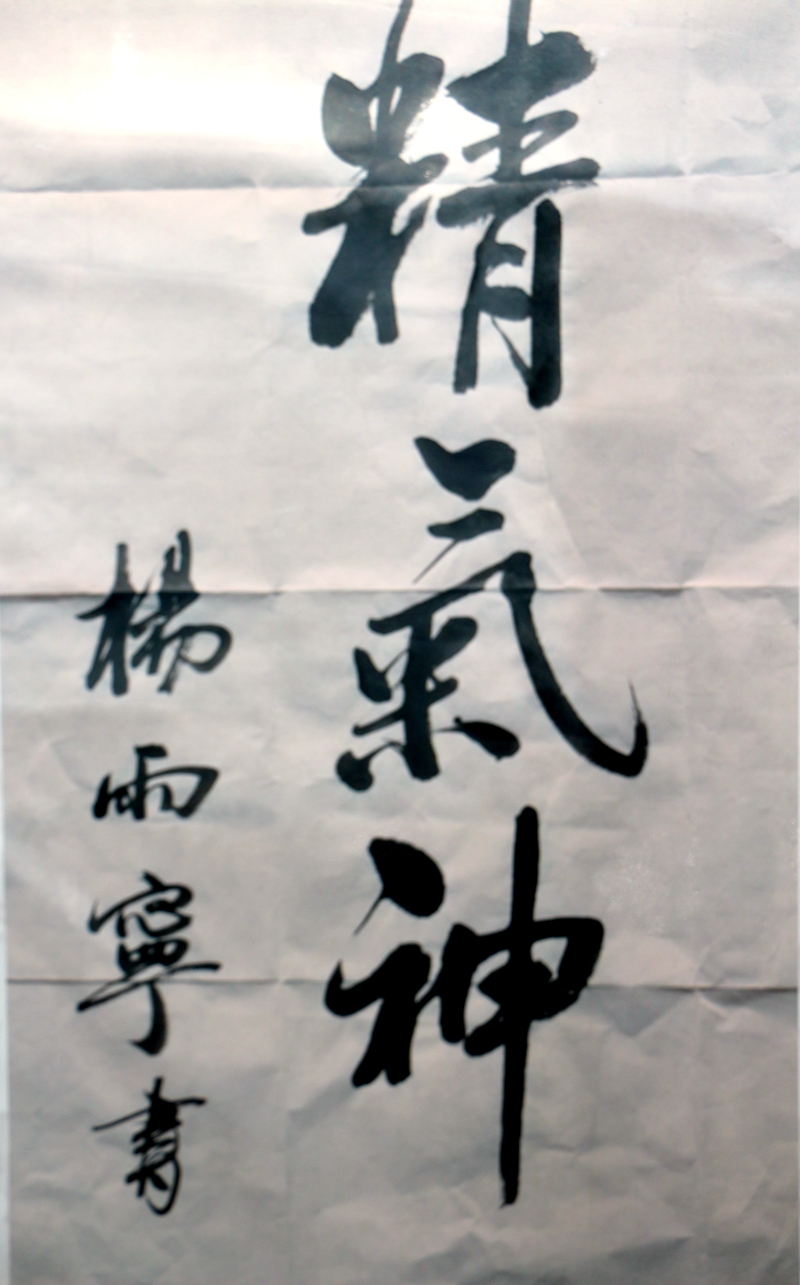 精氣神
楊雨寧書